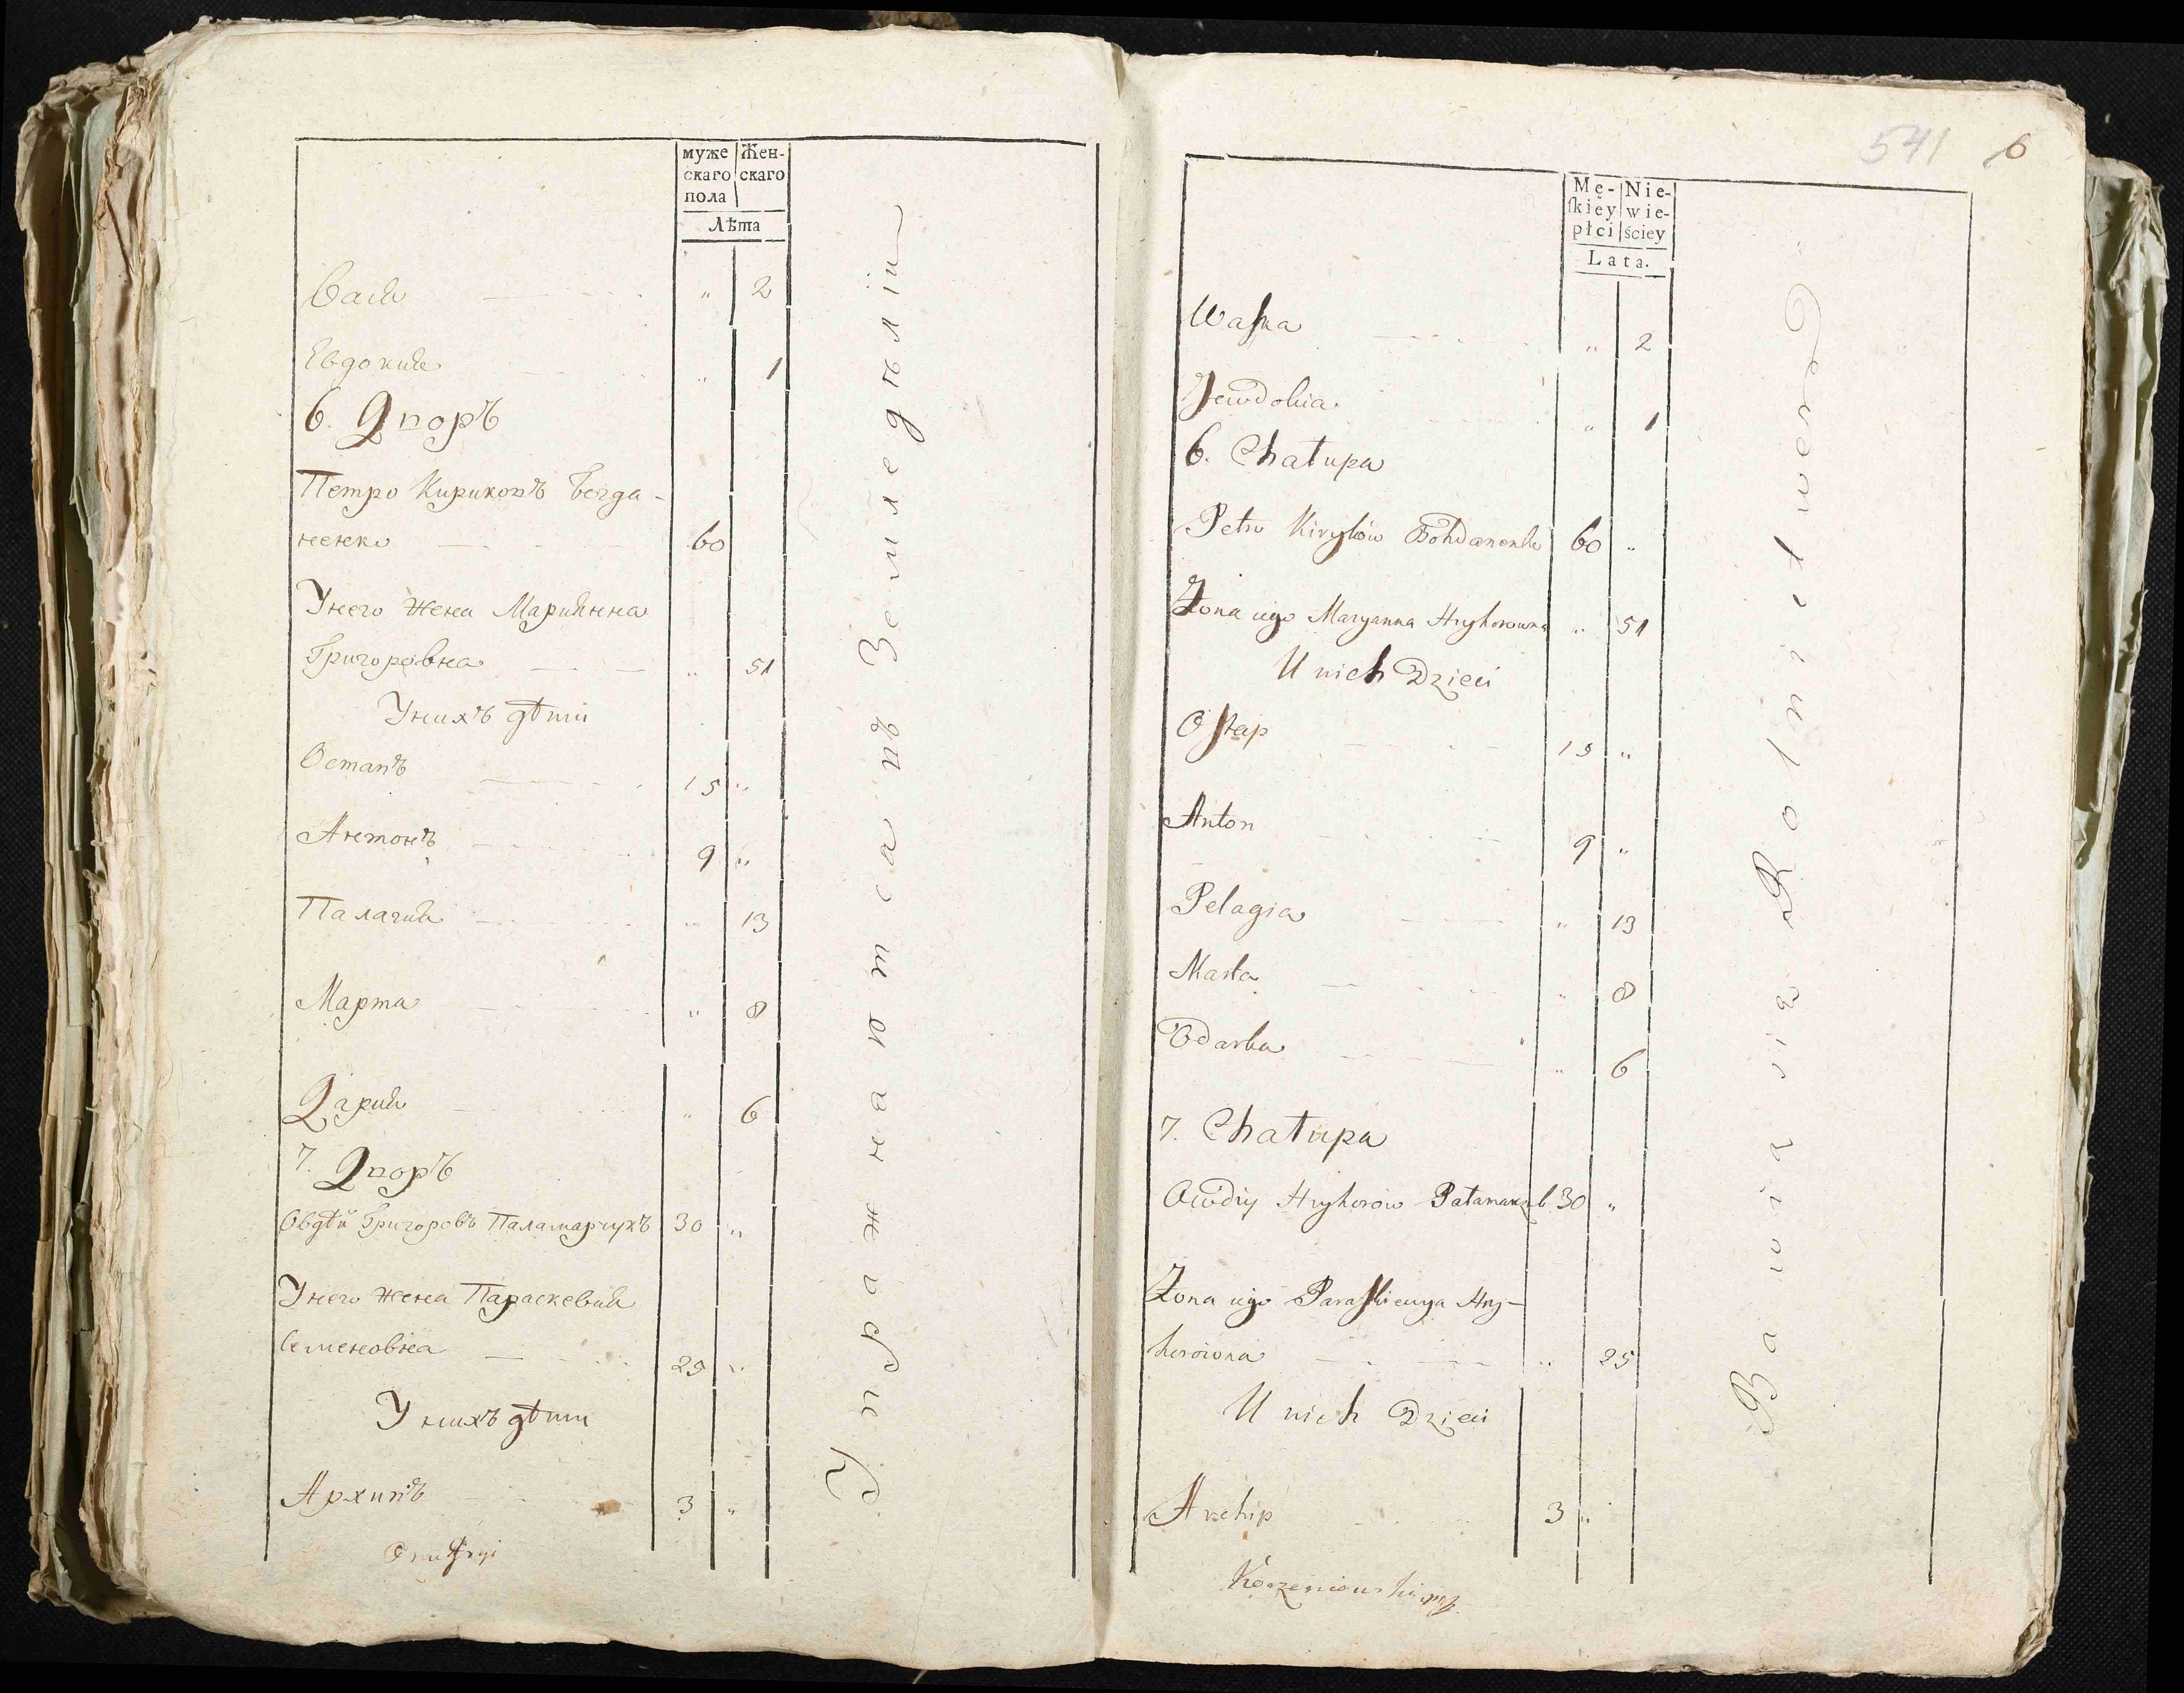 муже Жен-
скаго скаго
пола
Лѣта
Вася " 2
Евдокия " 1
6. Дворъ
Петро Кириковъ Богда-
ненко 60
Унего жена Мариянна
Григоровна " 51
Унихъ дѣти
Остапъ 15 "
Антонъ 9 "
Палагия " 13
Марта " 8
Дария " 6
7. Дворъ
Овдѣй Григоровъ Паламарчукъ 30 "
Унего жена Параскевия
Семеновна 25 "
У нихъ дѣти
Архипъ 3 "
Упражнаются въ Земледѣлiи
541 6
Mę- Nie-
ſkiey wie-
płci ściey
Lata.
Waſka " 2
Jewdokia " 1
6. Chałupa
Petro Kiryków Bohdanenko 60 "
Żona iego Maryanna Hryhorowna " 51
U nich Dzieci
Oſtap 15 "
Anton 9 "
Pelagia " 13
Marta " 8
Odarka " 6
7. Chałupa
Owdiy Hryhorów Pałamarczuk 30 "
Żona iego Paraſkiewya Hry-
horowna " 25
U nich Dzieci
Archip 3 "
Bawią się Rolnictwem
Korzeniowski